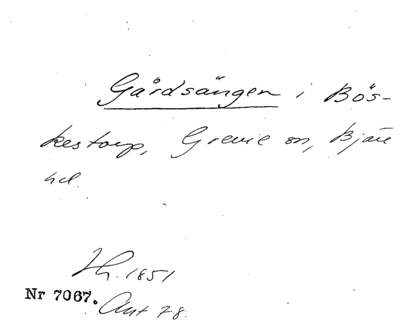 Gårdsängen i Bös-
kestorp, Grevie sn, Bjäre
hd.
Hh. 1851
Nr 7067.
Ant 78.